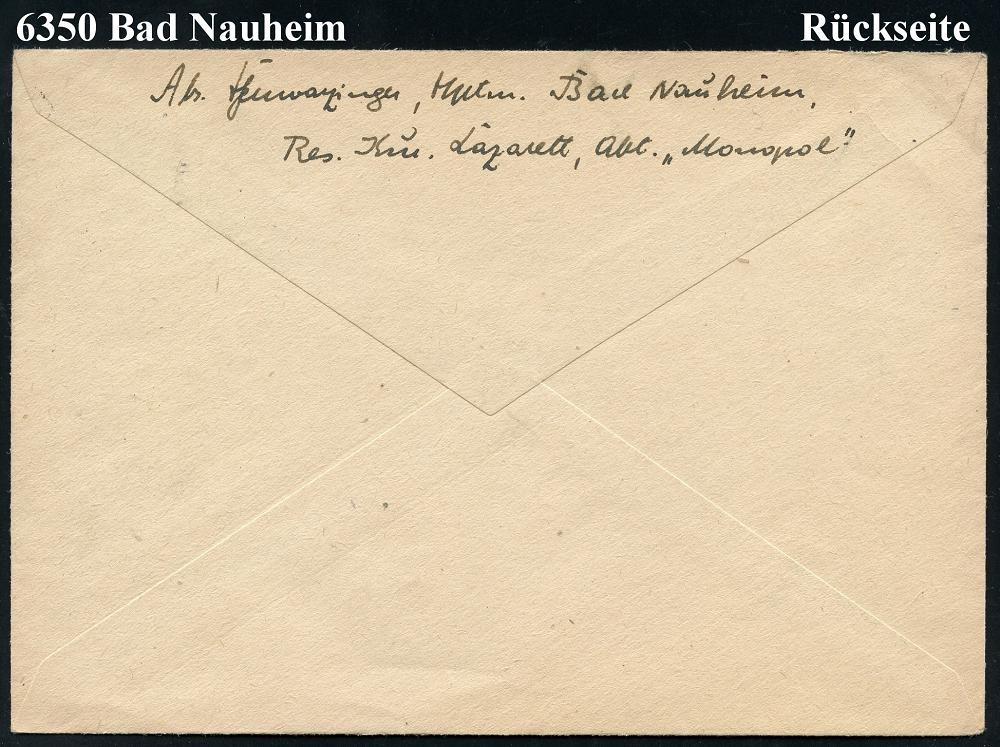 6350 Bad Nauheim Rückseite
Ab. , Hptm. Bad Nauheim,
Res. Kur. Lazarett, Abt. „Monopol"